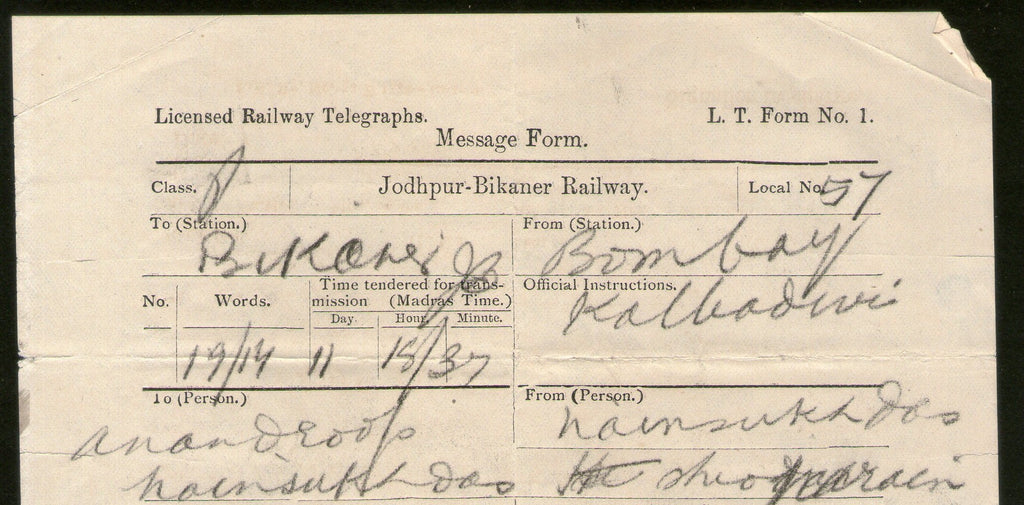 Licensed Railway Telegraphs. L. T. Form No. 1.
Message Form.
Class. Jodhpur-Bikaner Railway. Local No. 57
To (Station.) From (Station.)
Bikaner Bombay
No. Words. Time tendered for trans-mission (Madras Time.) Official Instructions.
Day. Hour. Minute. Kalbadevi
19/14 11 15/37
To (Person.) From (Person.)
anandroop nainsukh das
nainsukh das